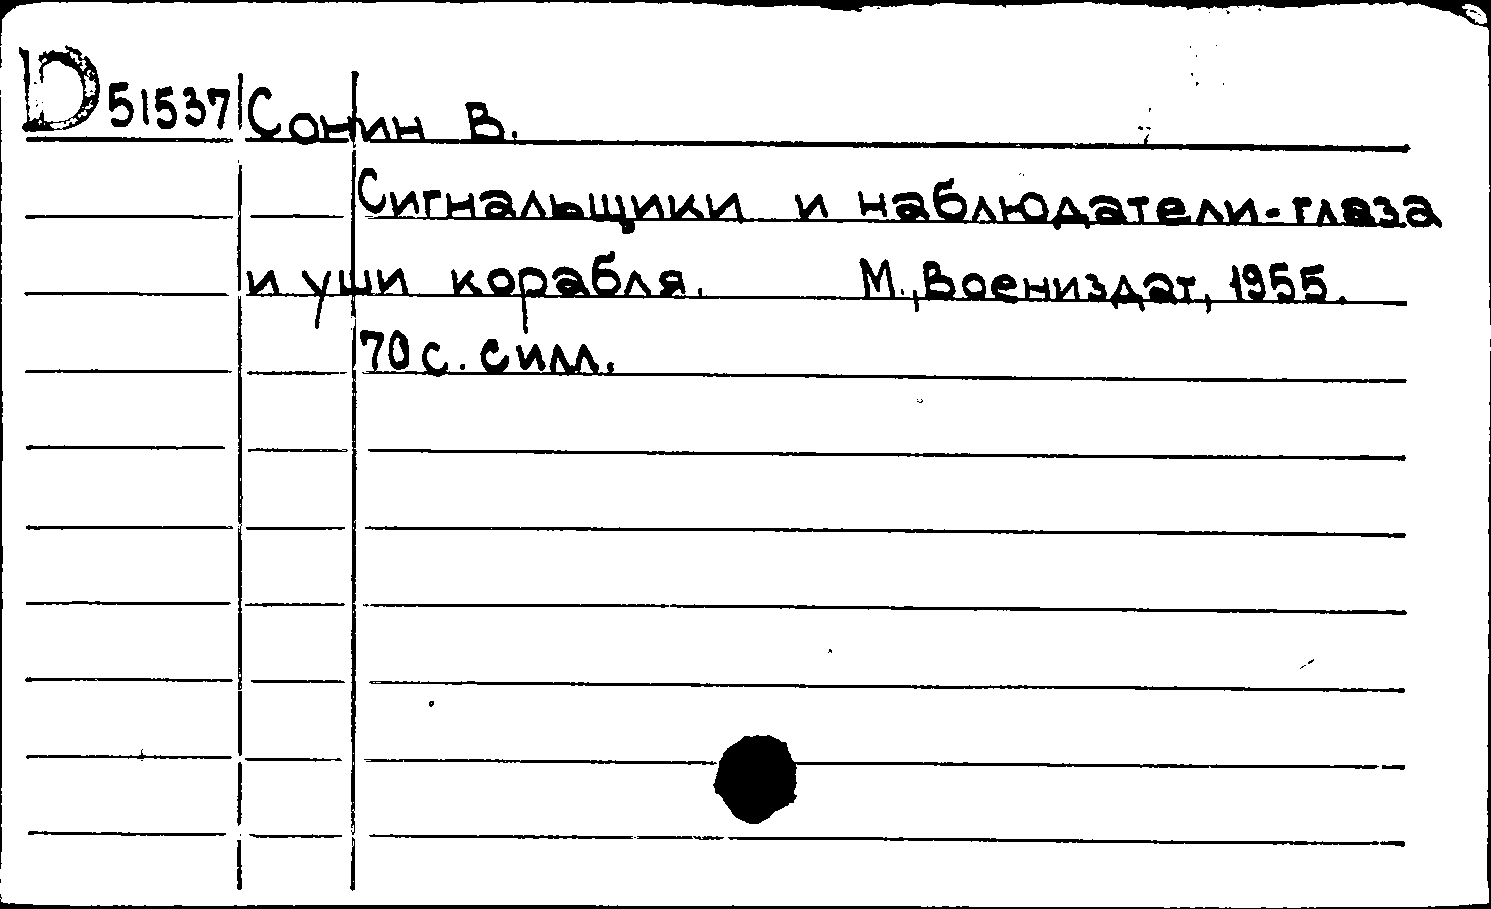 D 51537 Сонин В.
Сигнальщики и наблюдатели-глаза
и уши корабля. М., Воениздат, 1955.
70 с. с илл.